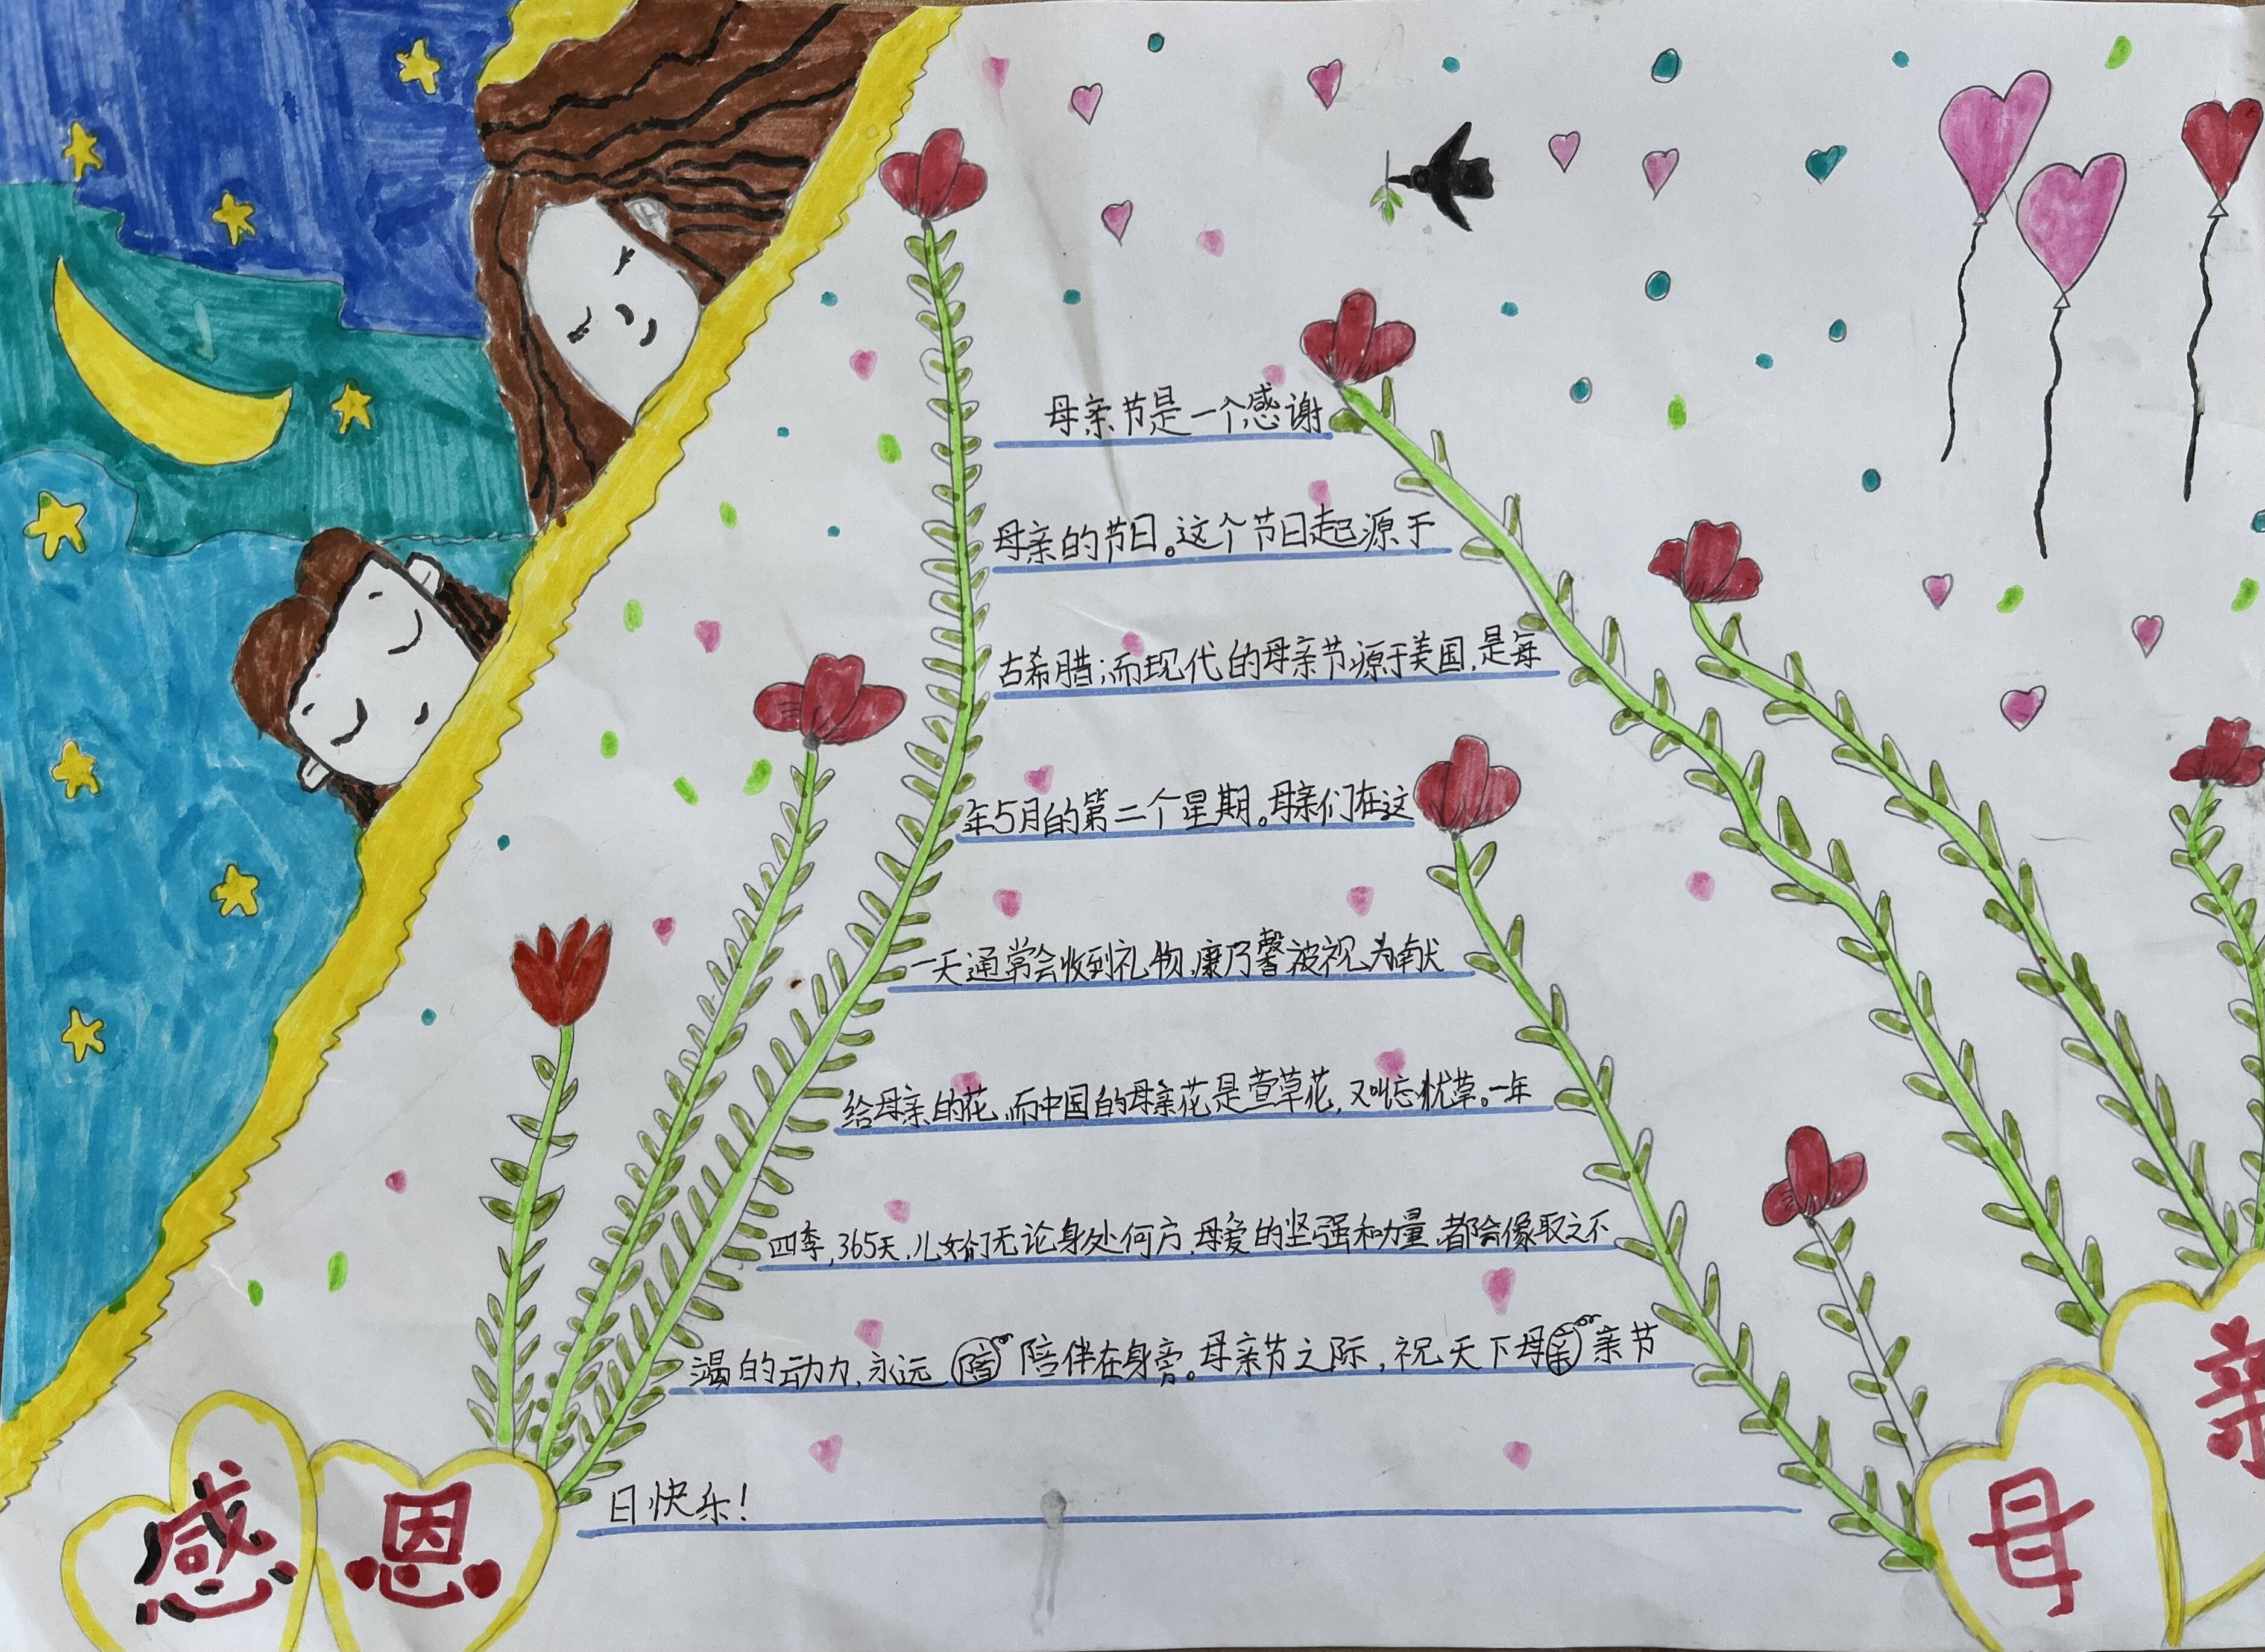 母亲节是一个感谢
母亲的节日。这个节日起源于
古希腊;而现代的母亲节源于美国,是每
年5月的第二个星期。母亲们在这
一天通常会收到礼物,康乃馨被视为献
给母亲的花,而中国的母亲花是萱草花,又叫忘忧草。一年
四季,365天,儿女们无论身处何方,母爱的坚强和力量,都会像取之不
竭的动力,永远陪伴在身旁。母亲节之际,祝天下母亲节
日快乐!
感恩
母亲